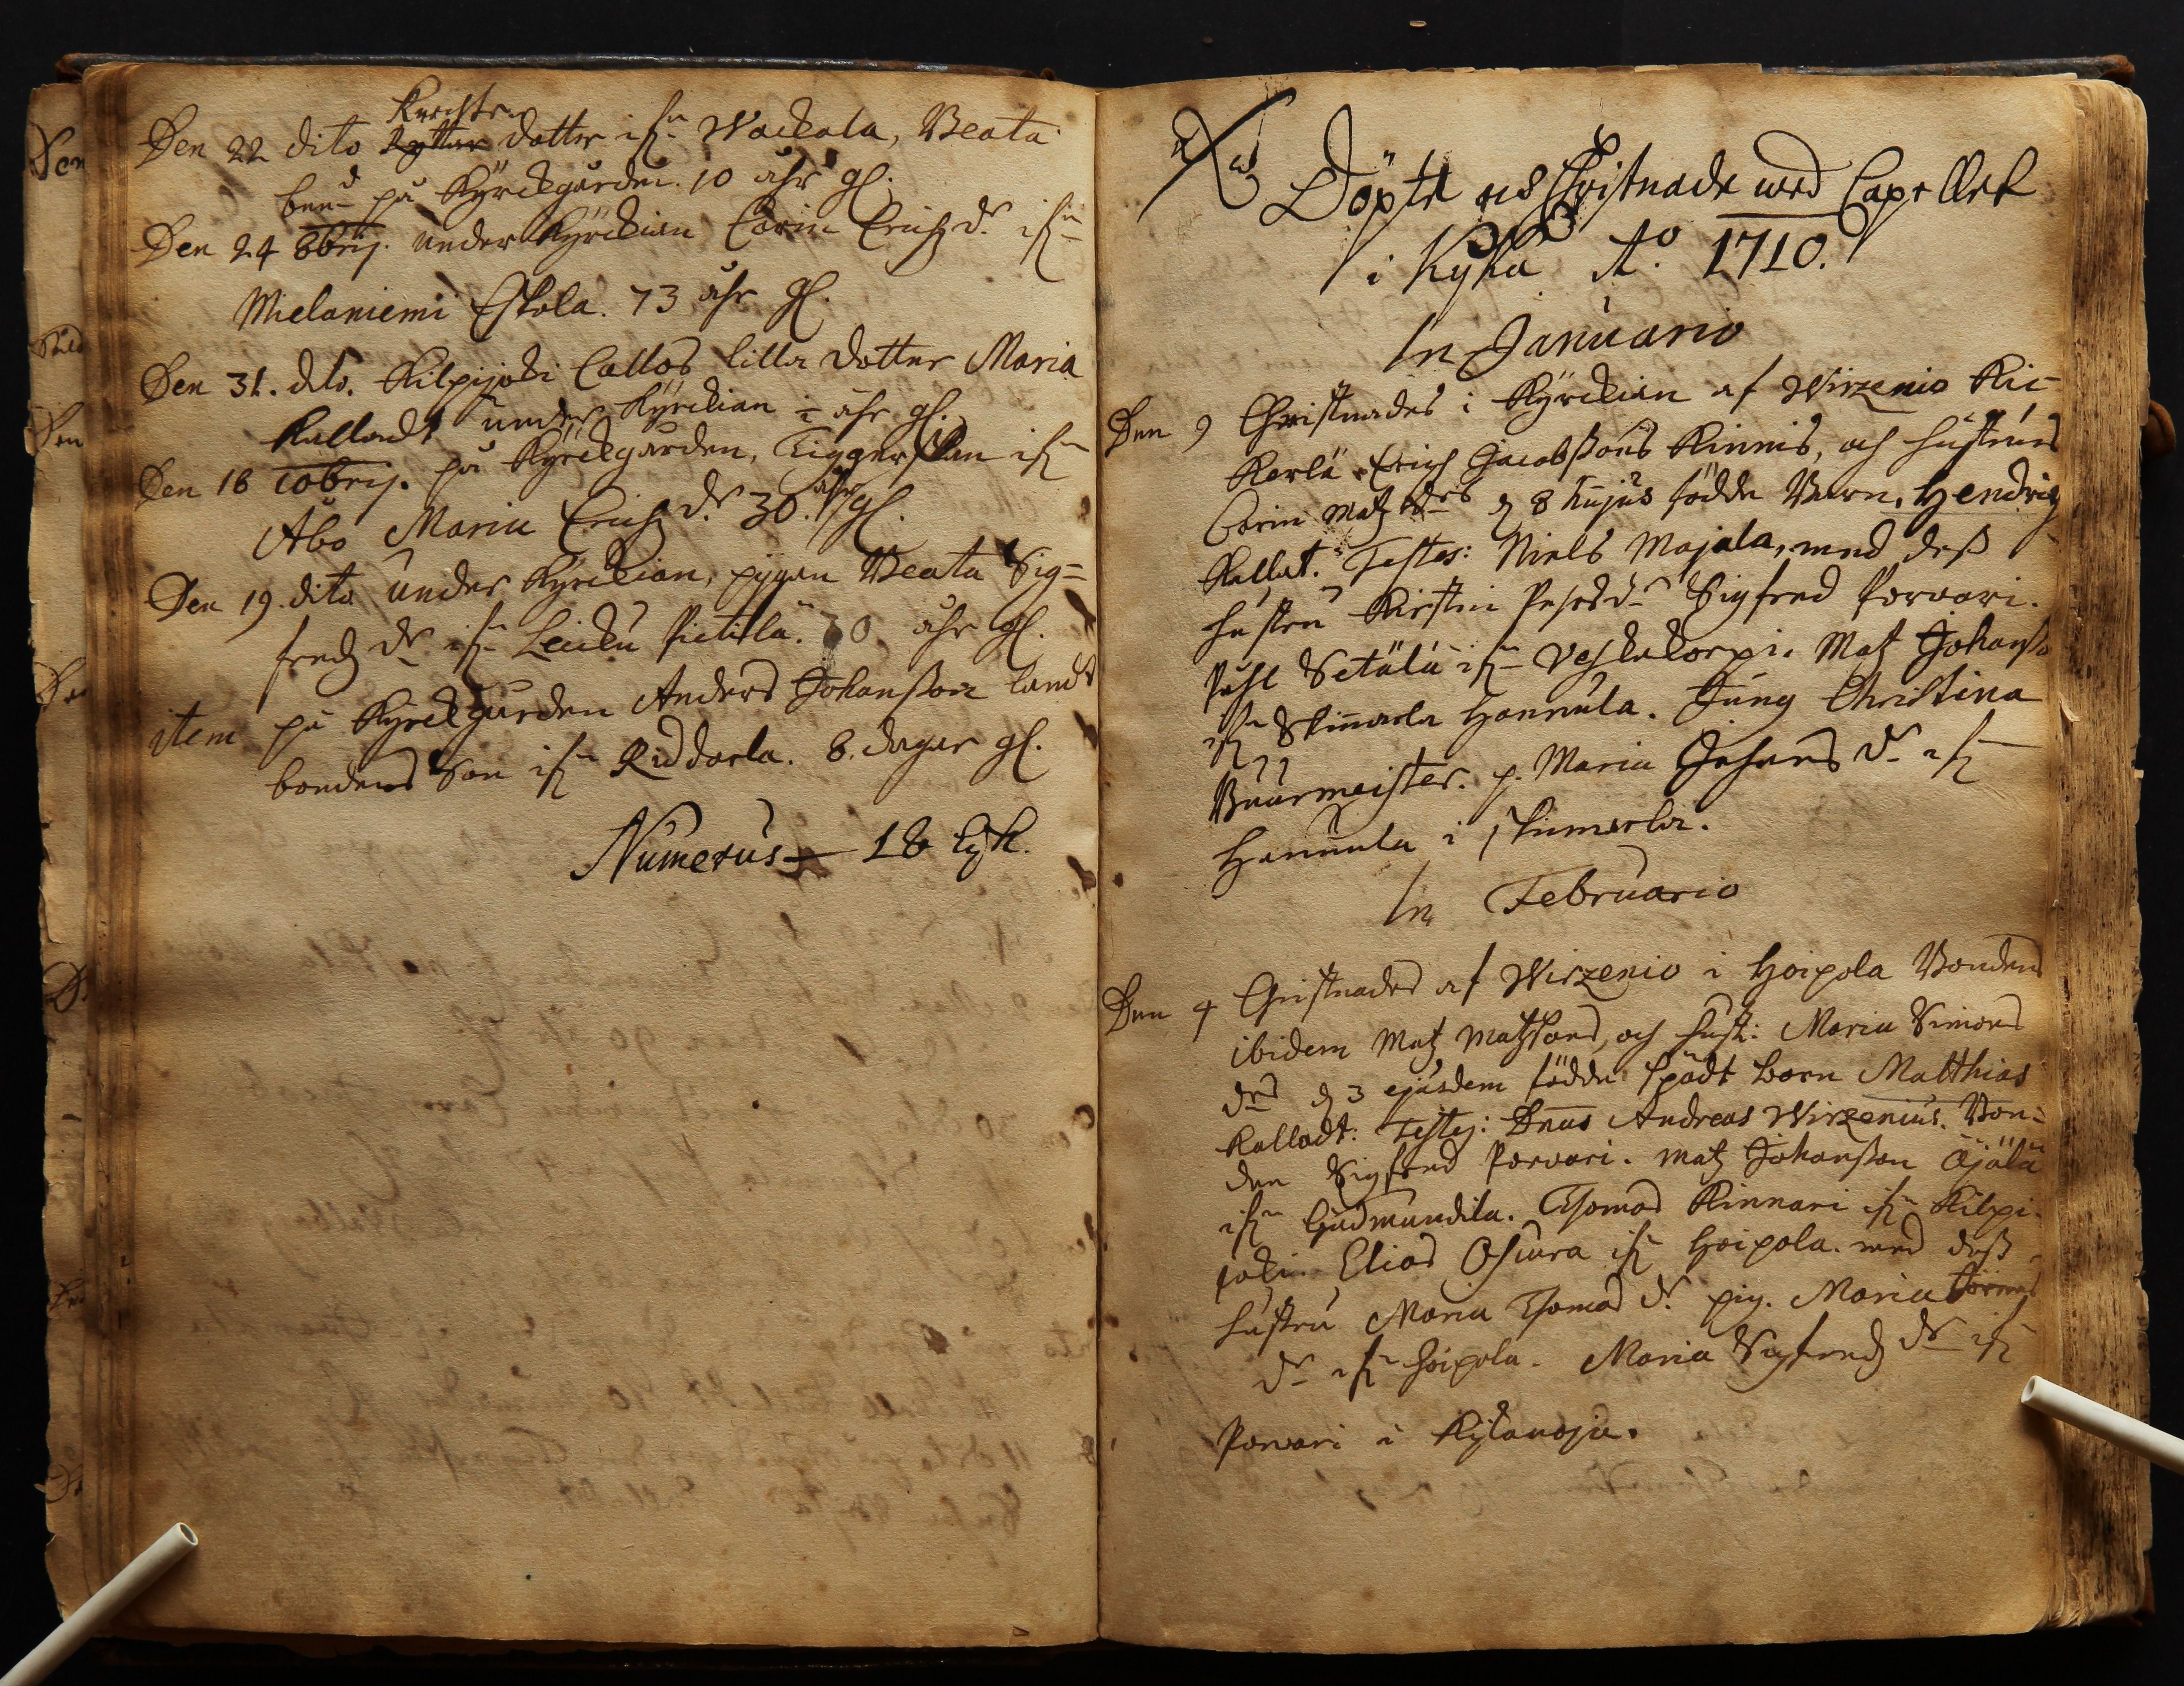 Den 22 dito Knechte Ryttar dotter ifrn Wackala, Beata
bend på Kyrckgården. 10 åhr gl.
Den 24 8brij. under Kyrckian Carin Erichz dr ifrn
Mielaniemi Eskola. 73 åhr gl.
Den 31. dito. Kilpijoki Callos lilla dotter Maria
Kalladt under Kyrckian ½ åhr gl.
Den 18 10brij. på Kyrckgården, Tiggerskan ifrn
Åbo Maria Erichz dr. 30. åhr gl.
Den 19. dito under Kyrckian, pygan Beata Sig=
fredz dr ifrn Leicku Pietilä. 70 åhr gl.
item på Kyrckgården Anders Johansson landt
bondens Son ifrn Riddarla. 8. dagar gl.
Numerus 18 Lijk.
Döpte och Christnade wed Capellet
i Kyka Ao. 1710.
In Januario
Den 9 Christnades i Kyrckian af Wirzenio Kic-
Kerlä Erich Jacobssons Kinnis, och hustruns
Carin Matz drs d 8 hujus födde Barn, Hendrich
Kallat. Testes: Niels Majala, med dess
hustru Kirstin Pehrs dr Sigfred Porvari.
Påhl Setälä ifrn Veskekorpi. Matz Johansso
ifrn Skinnarla Hannula. Jung Christina
Buurmeister. p. Maria Johans dr ifrn
Hannula i Skinnarla.
In Februario
Den 4 Christnades af Wirzenio i Hoipola Bondens
ibidem Matz Matzsons, och hust: Maria Simons
drs d 3 ejusdem födde spädt barn Matthias
Kalladt: Testes: Dnus Andreas Wirzenius. Bon-
den Sigfred Porvari. Matz Johansson Äjälä
ifrn Gudmundila. Thomas Kinnari ifrn Kilpi-
joki. Elias Ohura ifrn Hoipola. med dess
hustru Maria Thomas dr. pig. Maria
dr ifrn hoipola. Maria Sigfredz dr ifrn
Porvari i Kylänoja.